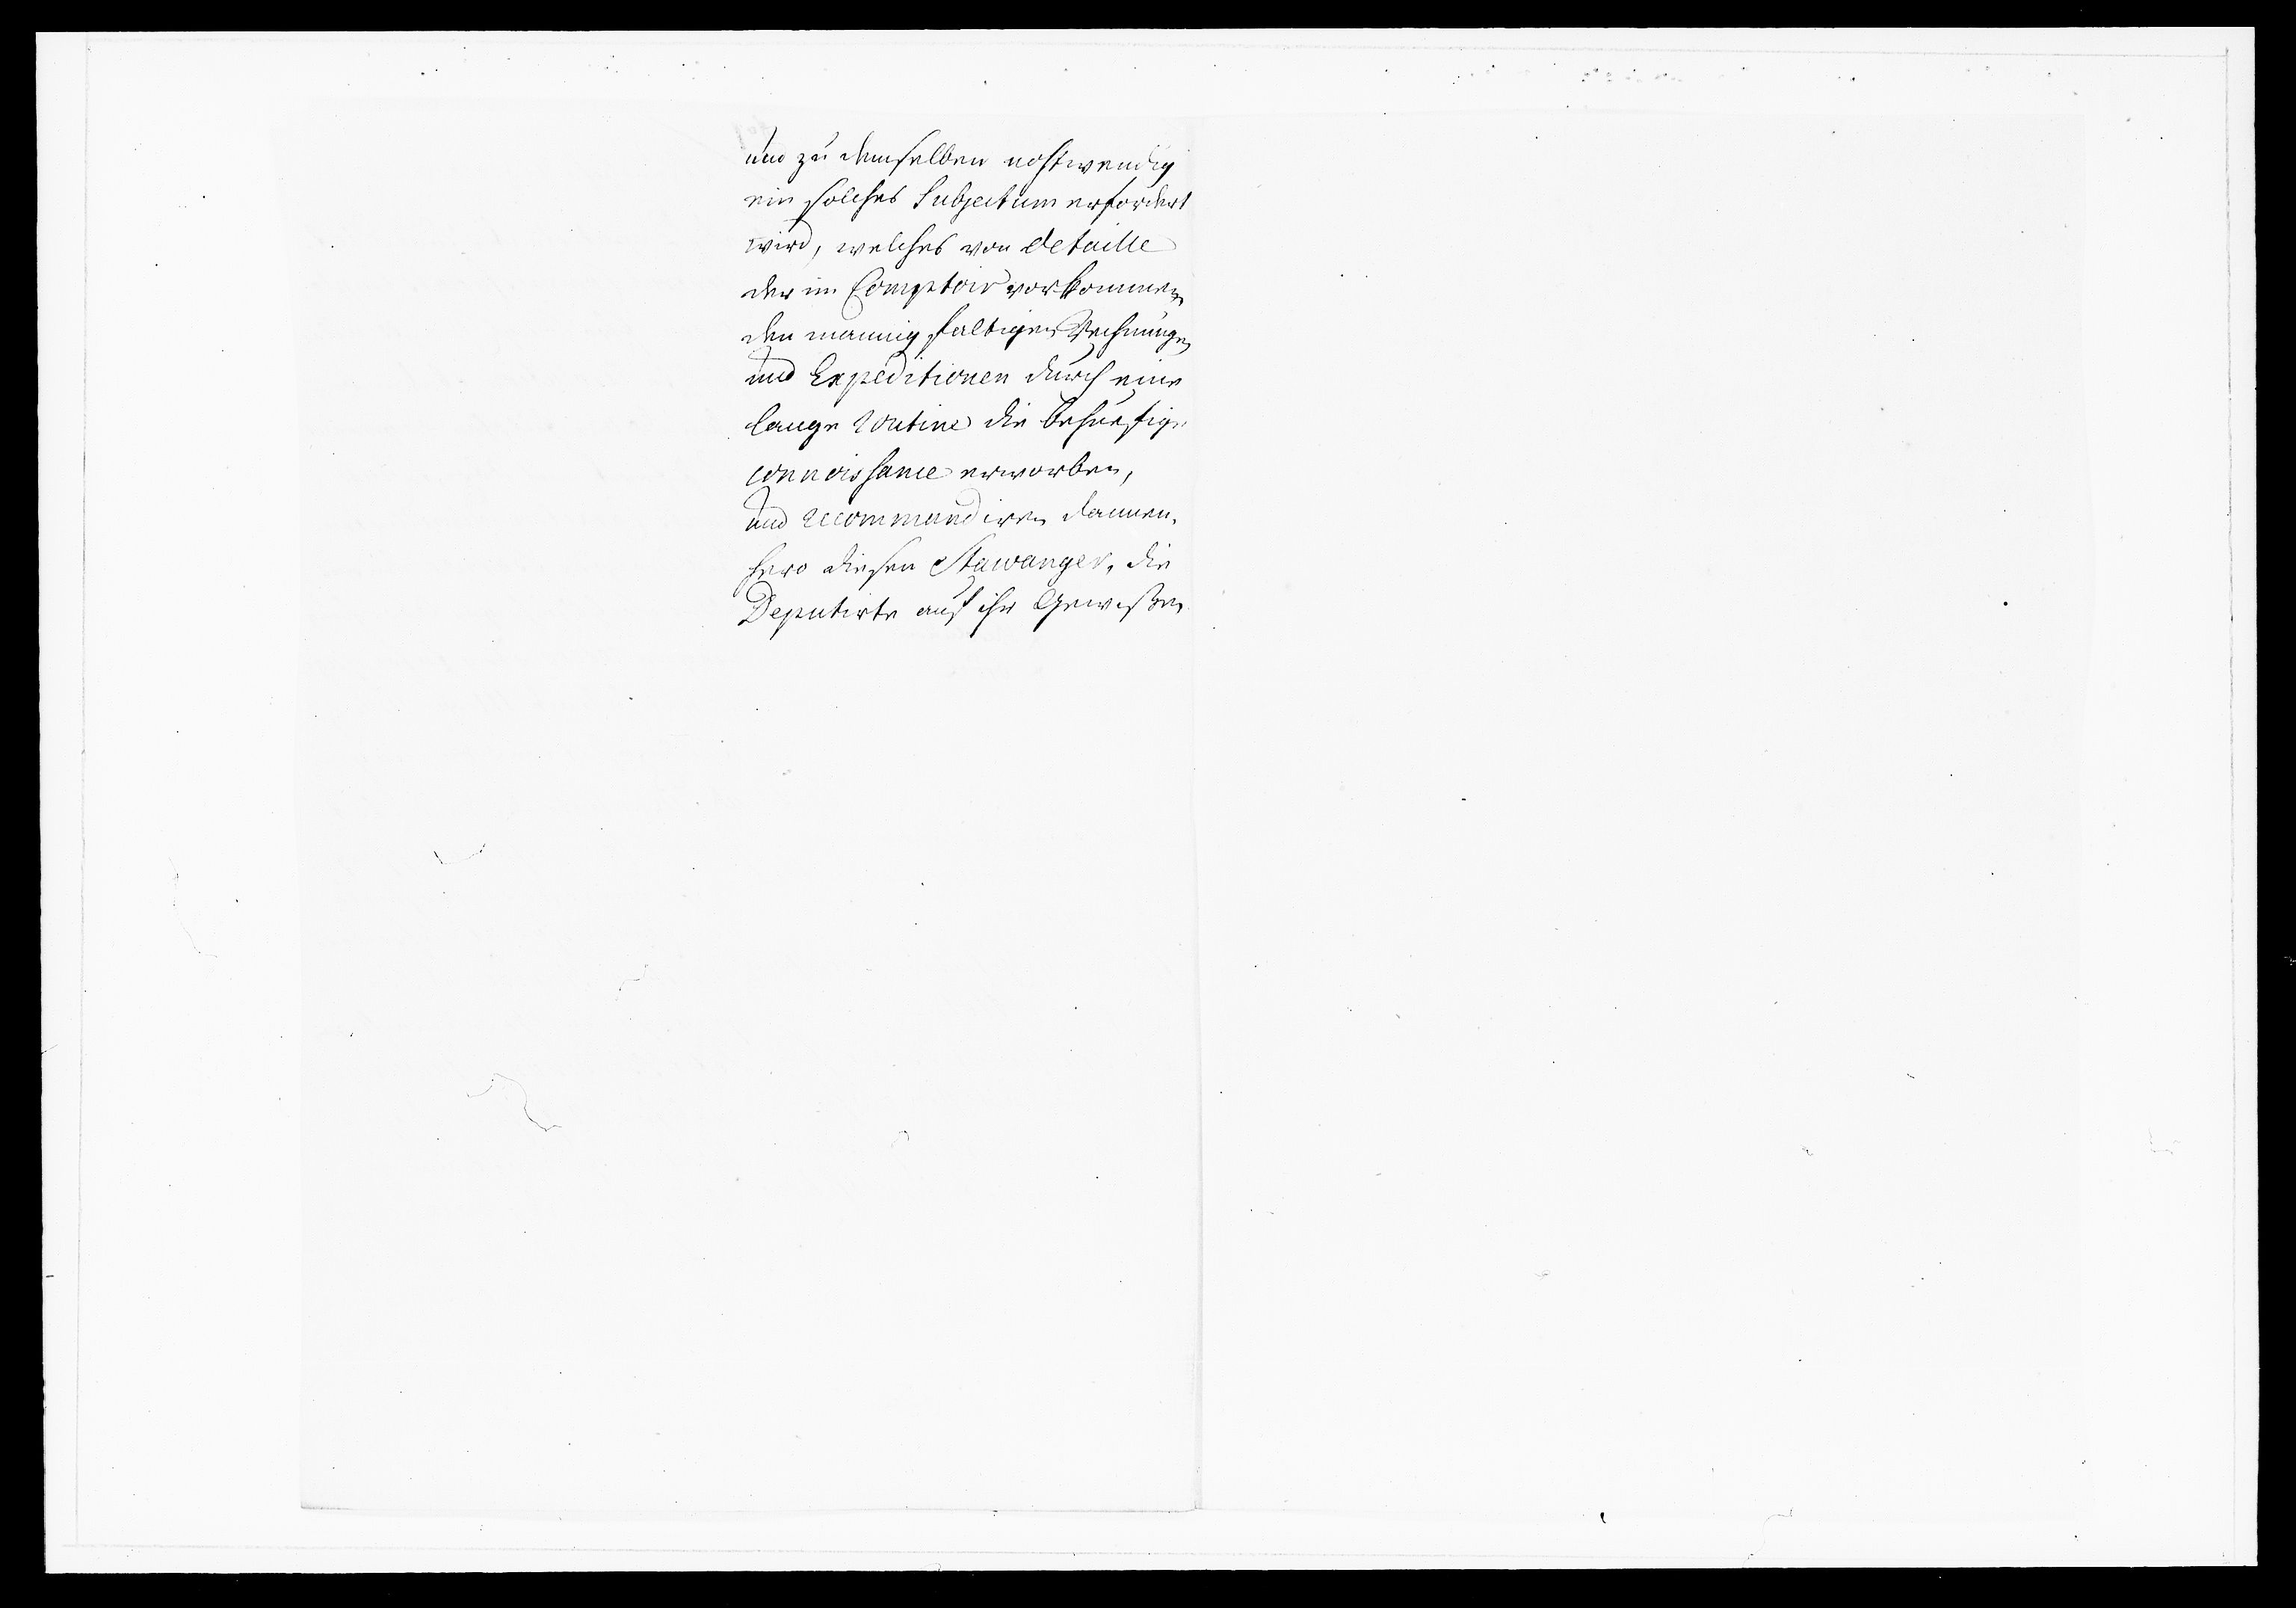 und zu demselben nohtwendig
ein solches Subjectum erfordert
wird, welches von detaille
der im Comptoir vorkommen,
den mannigfaltigen Rechnungen
und Expeditionen durch eine
lange routine die behuefige
connoissance erworben,
und recommendiren dannen,
hero diesen Stawanger, die
Deputirte auf ihr Gewißen